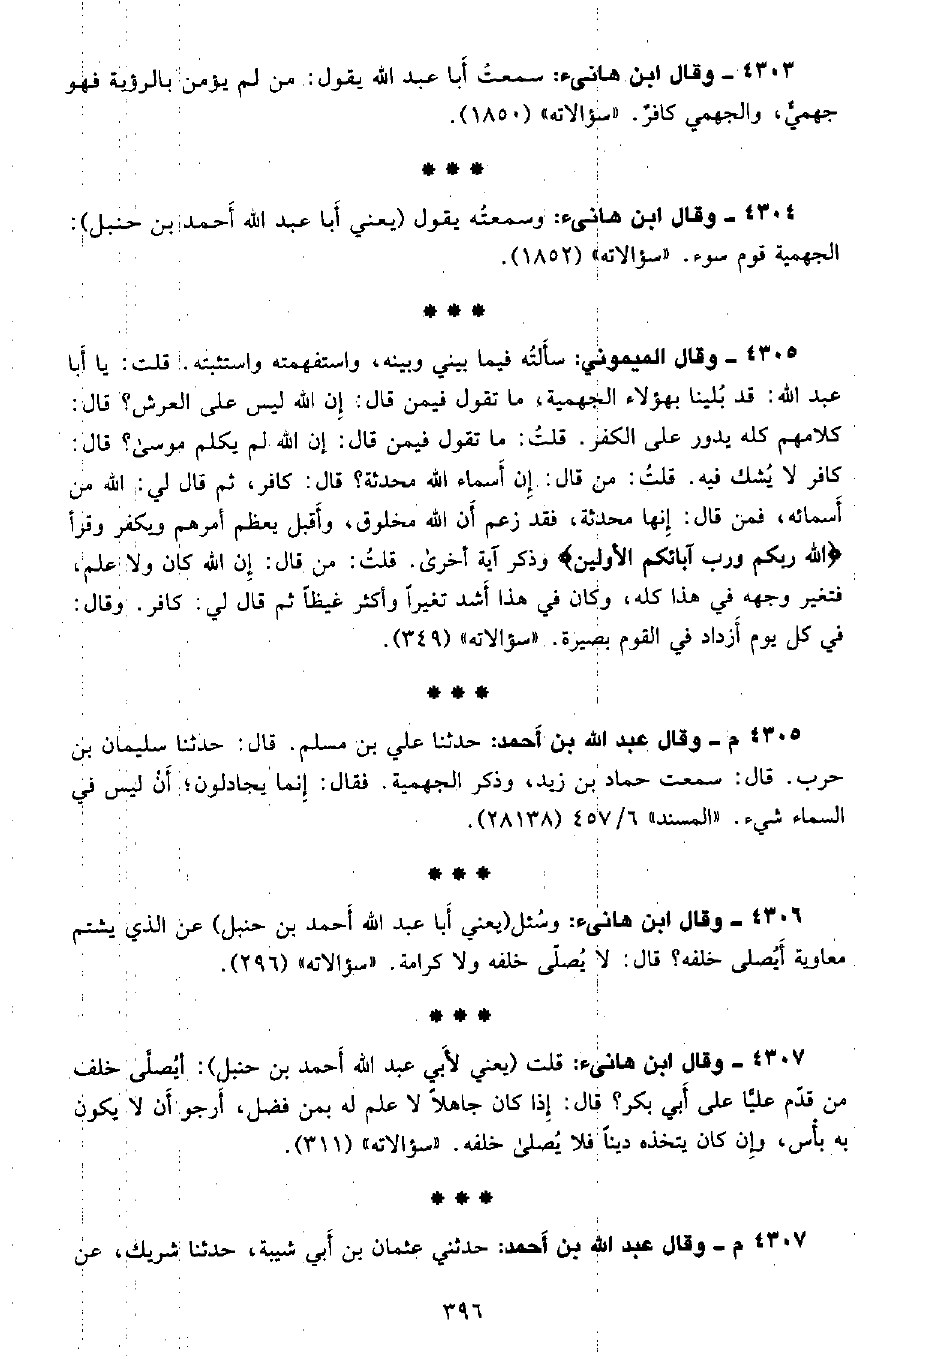 ٤٣٠٣ ـ وقال ابن هانىء: سمعتُ أبا عبد الله يقول: من لم يؤمن بالرؤية فهو
جهميٌّ، والجهمي كافرٌ. «سؤالاته» (١٨٥٠).
* * *
٤٣٠٤ ـ وقال ابن هانىء: وسمعتُه يقول (يعني أبا عبد الله أحمد بن حنبل):
الجهمية قوم سوء. «سؤالاته» (١٨٥٢).
* * *
٤٣٠٥ ـ وقال الميموني: سألتُه فيما بيني وبينه، واستفهمته واستثبته. قلت: يا أبا
عبد الله: قد بُلينا بهؤلاء الجهمية، ما تقول فيمن قال: إن الله ليس على العرش؟ قال:
كلامهم كله يدور على الكفر. قلتُ: ما تقول فيمن قال: إن الله لم يكلم موسىٰ؟ قال:
كافر لا يُشك فيه. قلتُ: من قال: إن أسماء الله محدثة؟ قال: كافر، ثم قال لي: الله من
أسمائه، فمن قال: إنها محدثة، فقد زعم أن الله مخلوق، وأقبل يعظم أمرهم ويكفر وقرأ
﴿الله ربكم ورب آبائكم الأولين﴾ وذكر آية أخرىٰ. قلتُ: من قال: إن الله كان ولا علم،
فتغير وجهه في هذا كله، وكان في هذا أشد تغيراً وأكثر غيظاً ثم قال لي: كافر. وقال:
في كل يوم أزداد في القوم بصيرة. «سؤالاته» (٣٤٩).
* * *
٤٣٠٥ م ـ وقال عبد الله بن أحمد: حدثنا علي بن مسلم. قال: حدثنا سليمان بن
حرب. قال: سمعت حماد بن زيد، وذكر الجهمية. فقال: إنما يجادلون؛ أنْ ليس في
السماء شيء. «المسند» ٤٥٧/٦ (٢٨١٣٨).
* * *
٤٣٠٦ ـ وقال ابن هانىء: وسُئل(يعني أبا عبد الله أحمد بن حنبل) عن الذي يشتم
معاوية أيُصلى خلفه؟ قال: لا يُصلّى خلفه ولا كرامة. «سؤالاته» (٢٩٦).
* * *
٤٣٠٧ ـ وقال ابن هانىء: قلت (يعني لأبي عبد الله أحمد بن حنبل): أيُصلَّى خلف
من قدّم عليًّا على أبي بكر؟ قال: إذا كان جاهلاً لا علم له بمن فضل، أرجو أن لا يكون
به بأس، وإن كان يتخذه ديناً فلا يُصلىٰ خلفه. «سؤالاته» (٣١١).
* * *
٤٣٠٧ م ـ وقال عبد الله بن أحمد: حدثني عثمان بن أبي شيبة، حدثنا شريك، عن
٣٩٦